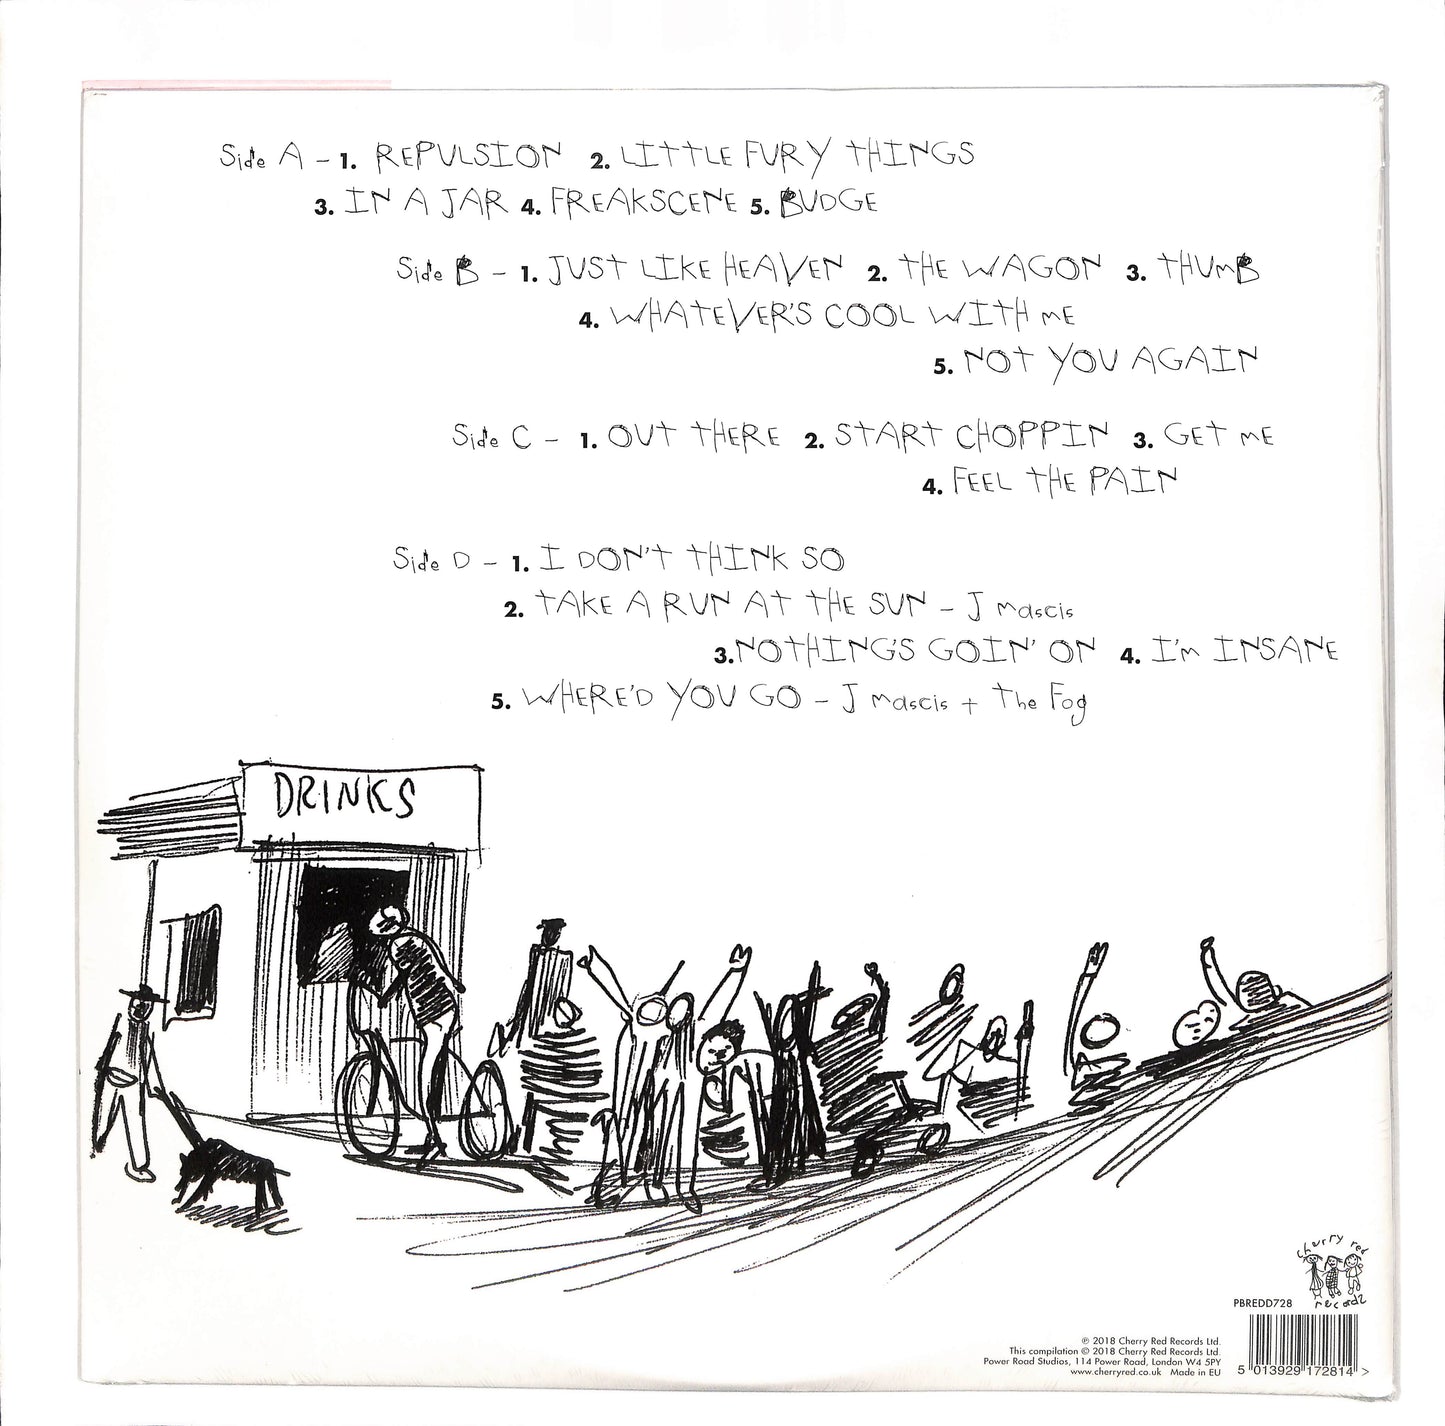 Side A – 1. REPULSION 2. LITTLE FURY THINGS
3. IN A JAR 4. FREAKSCENE 5. BUDGE
Side B – 1. JUST LIKE HEAVEN 2. THE WAGON 3. THUMB
4. WHATEVER'S COOL WITH ME
5. NOT YOU AGAIN
Side C – 1. OUT THERE 2. START CHOPPIN 3. GET ME
4. FEEL THE PAIN
Side D – 1. I DON'T THINK SO
2. TAKE A RUN AT THE SUN – J mascis
3.NOTHING'S GOIN' ON 4. I'm INSANE
5. WHERE'D YOU GO – J mascis + The Fog
DRINKS
cherry red
records
PBREDD728
℗ 2018 Cherry Red Records Ltd.
This compilation © 2018 Cherry Red Records Ltd.
Power Road Studios, 114 Power Road, London W4 5PY
www.cherryred.co.uk Made in EU
5 013929 172814 >